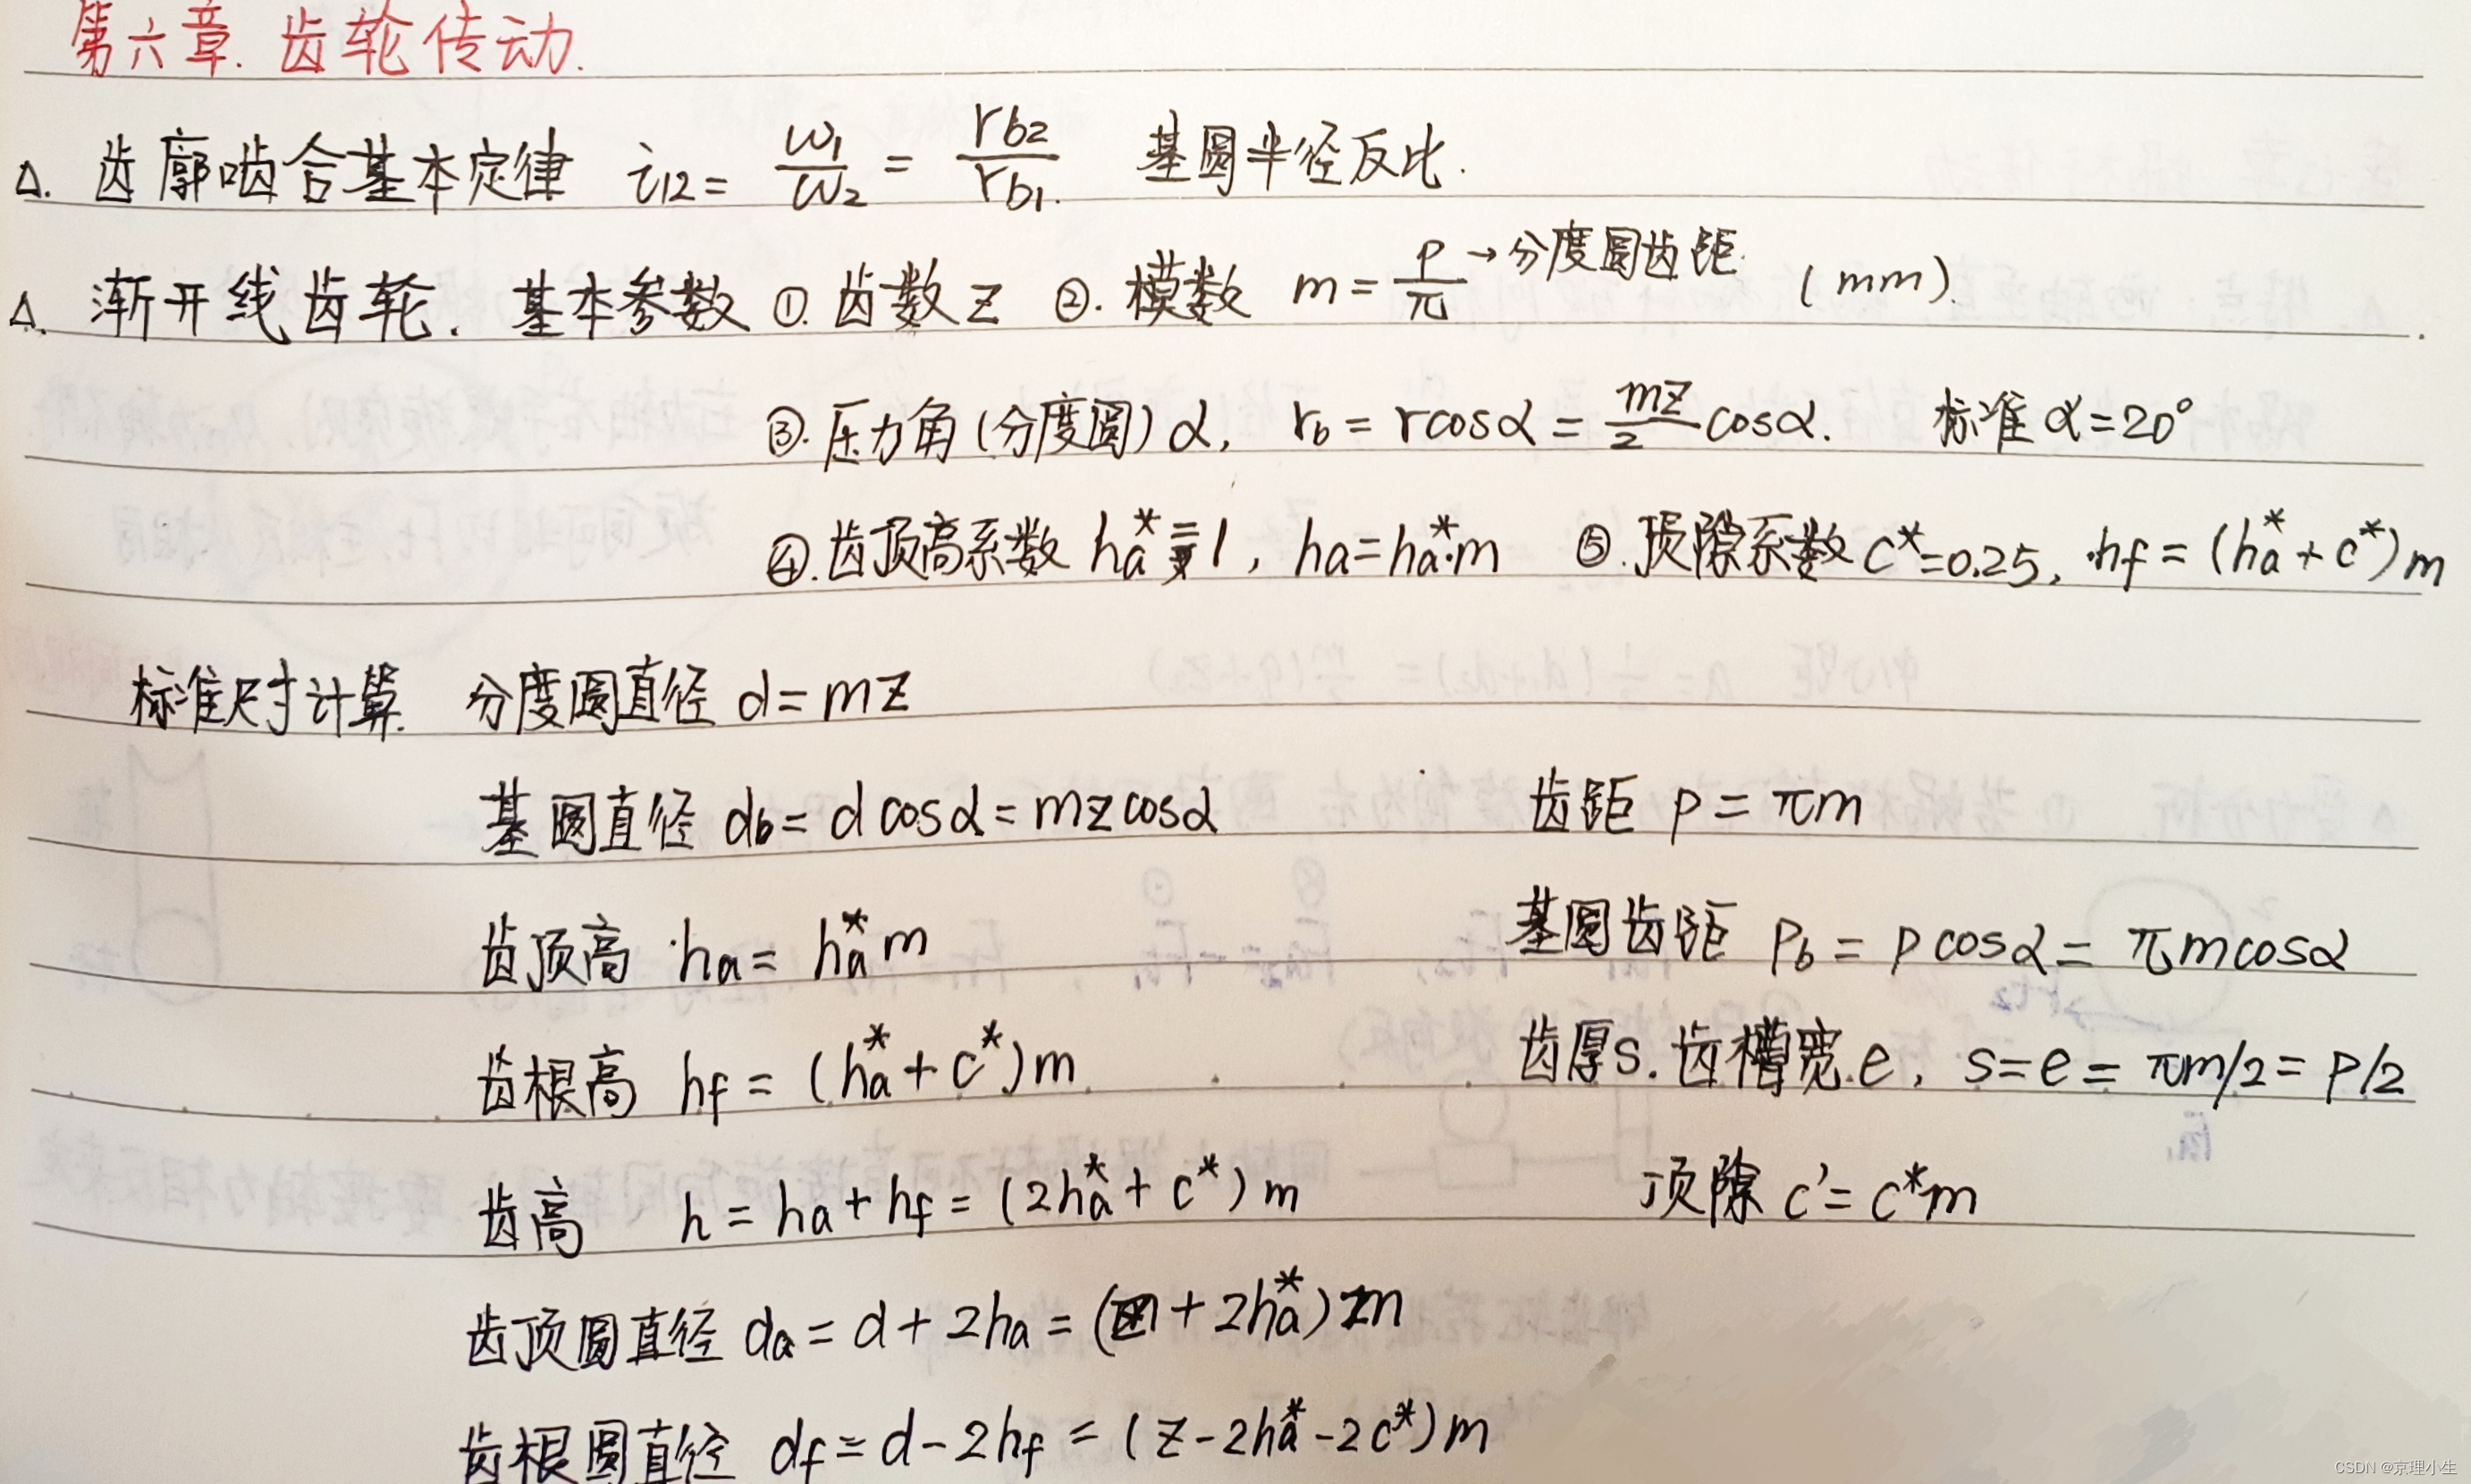 第六章. 齿轮传动.
Δ. 齿廓啮合基本定律 i12 = ω1/ω2 = rb2/rb1. 基圆半径反比.
Δ. 渐开线齿轮. 基本参数 ①. 齿数 z ②. 模数 m = p/π → 分度圆齿距. (mm).
③. 压力角 (分度圆) α, rb = rcosα = mz/2 cosα. 标准 α = 20°
④. 齿顶高系数 ha* = 1, ha = ha*·m ⑤. 顶隙系数 c* = 0.25, hf = (ha* + c*)m
标准尺寸计算. 分度圆直径 d = mz
基圆直径 db = d cosα = mz cosα 齿距 p = πm
齿顶高 ha = ha*m 基圆齿距 pb = p cosα = πm cosα
齿根高 hf = (ha* + c*)m 齿厚s. 齿槽宽e, s = e = πm/2 = p/2
齿高 h = ha + hf = (2ha* + c*)m 顶隙 c' = c*m
齿顶圆直径 da = d + 2ha = ( + 2ha*)m
齿根圆直径 df = d - 2hf = (z - 2ha* - 2c*)m
CSDN @京理小生